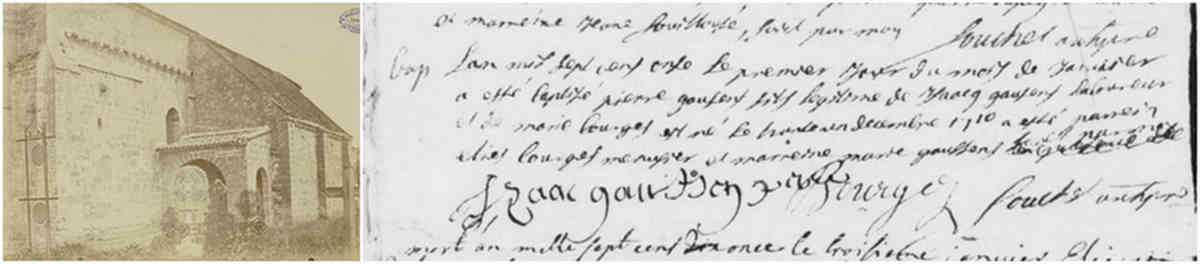 et marreine Jeane fouilleuse, fait par moy
Souchet archpre
bap Lan mil sept cens onze Le premier Jour du mois de Janvier
a esté baptizé pierre gausens fils legitime de Isaacq gausens laboureur
et de marie bourges est né Le trente un decembre 1710 a esté parrein
elies bourges menusier et marreine marie gaussens
Izaac gaussen bourges
Souchet archpre
mort an mille sept cens onze le troisieme janvier